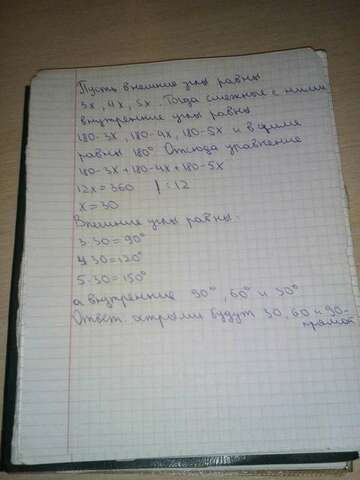 Пусть внешние углы равны
3х, 4х, 5х. Тогда смежные с ними
внутренние углы равны
180-3х, 180-4х, 180-5х и в сумме
равны 180° Отсюда уравнение
180-3х+180-4х+180-5х
12х=360 | :12
х=30
Внешние углы равны.
3·30=90°
4·30=120°
5·30=150°
а внутренние 90°, 60° и 30°
Ответ. острыми будут 30, 60 и 90-
прямой